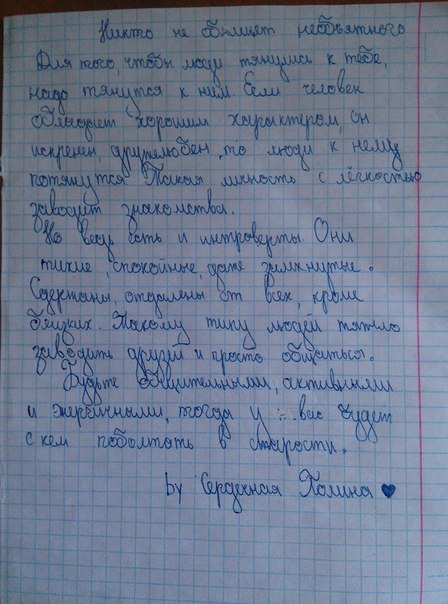 Никто не обнимет необъятного
Для того, чтобы люди тянулись к тебе,
надо тянутся к ним. Если человек
обладает хорошим характером, он
искренен, дружелюбен, то люди к нему
потянутся. Такая личность с лёгкостью
заводит знакомства.
Но ведь есть и интроверты. Они
тихие, спокойные, даже замкнутые.
Сдержаны, отдалены от всех, кроме
близких. Такому типу людей тяжло
заводить друзей и просто общаться.
Будьте общительными, активными
и энергичными, тогда у вас будет
с кем поболтать в старости.
by Сердечная Полина ♥